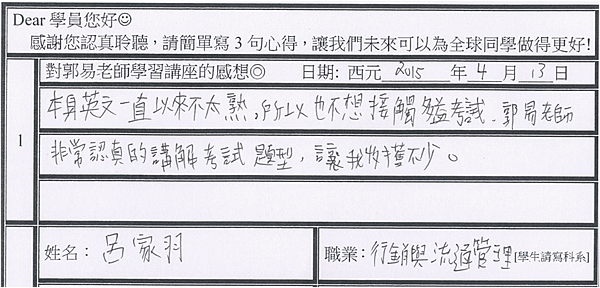 Dear 學員您好☺
感謝您認真聆聽，請簡單寫 3 句心得，讓我們未來可以為全球同學做得更好!
對郭易老師學習講座的感想◎ 日期: 西元 2015 年 4 月 13 日
1
本身英文一直以來不太熟,所以也不想接觸多益考試、郭易老師
非常認真的講解考試題型，讓我收獲不少。
姓名： 呂家羽 職業： 行銷與流通管理 [學生請寫科系]